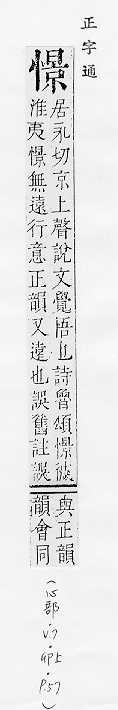 正字通
憬
居永切京上聲說文覺悟也詩魯頌憬彼
淮夷憬無遠行意正韻又遠也誤舊註誤
與正韻
韻會同
(心部.